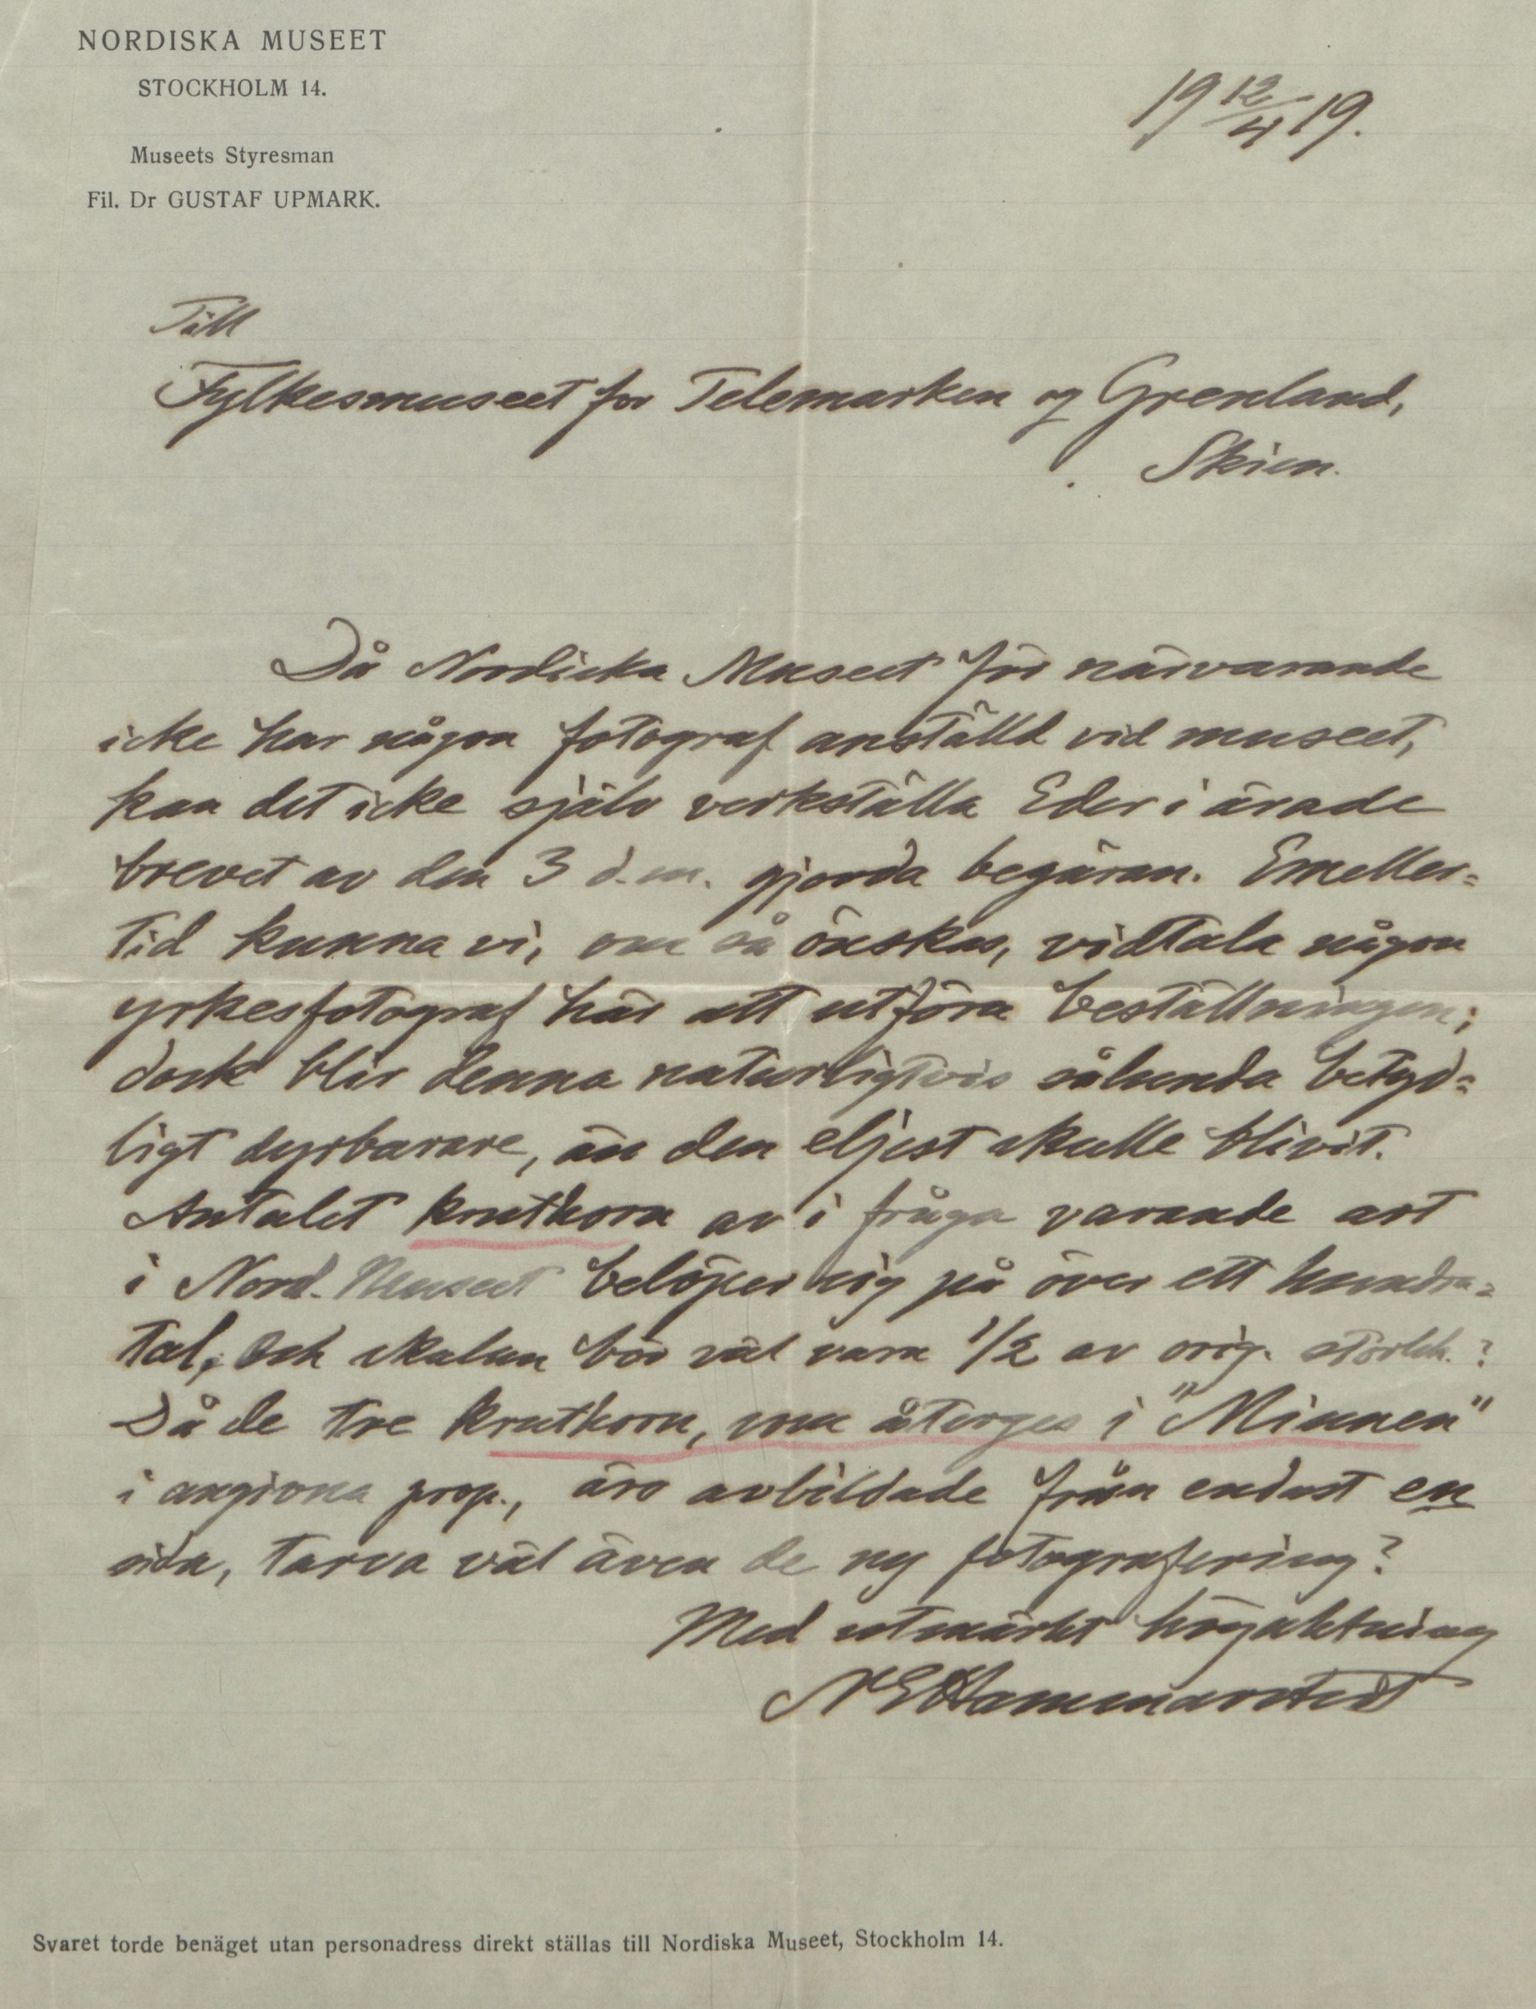 NORDISKA MUSEET
STOCKHOLM 14.
Museets Styresman
Fil. Dr GUSTAF UPMARK.
19 12/4 19.
Till
Fylkesmuseet for Telemarken og Grenland,
Skien.
Då Nordiska Museet för närvarande
icke har någon fotograf anställd vid museet,
kan det icke själv verkställa Eder i ärade
brevet av den 3 d.m. gjorda begäran. Emeller=
tid kunna vi, om så önskas, vidtala någon
yrkesfotograf här att utföra beställningen;
dock blir denna naturligtvis sålunda betyd=
ligt dyrbarare, än den eljest skulle blivit.
Antalet kruthorn av i fråga varande art
i Nord. Museet belöper sig på över ett hundra=
tal, och skalan bör väl vara 1/2 av orig. storlek.?
Då de tre kruthorn, som återges i "Minnen"
i angivna prop., äro avbildade från endast en
sida, tarva väl även de ny fotografering?
Med utmärkt högaktning
NEHammarstedt
Svaret torde benäget utan personadress direkt ställas till Nordiska Museet, Stockholm 14.